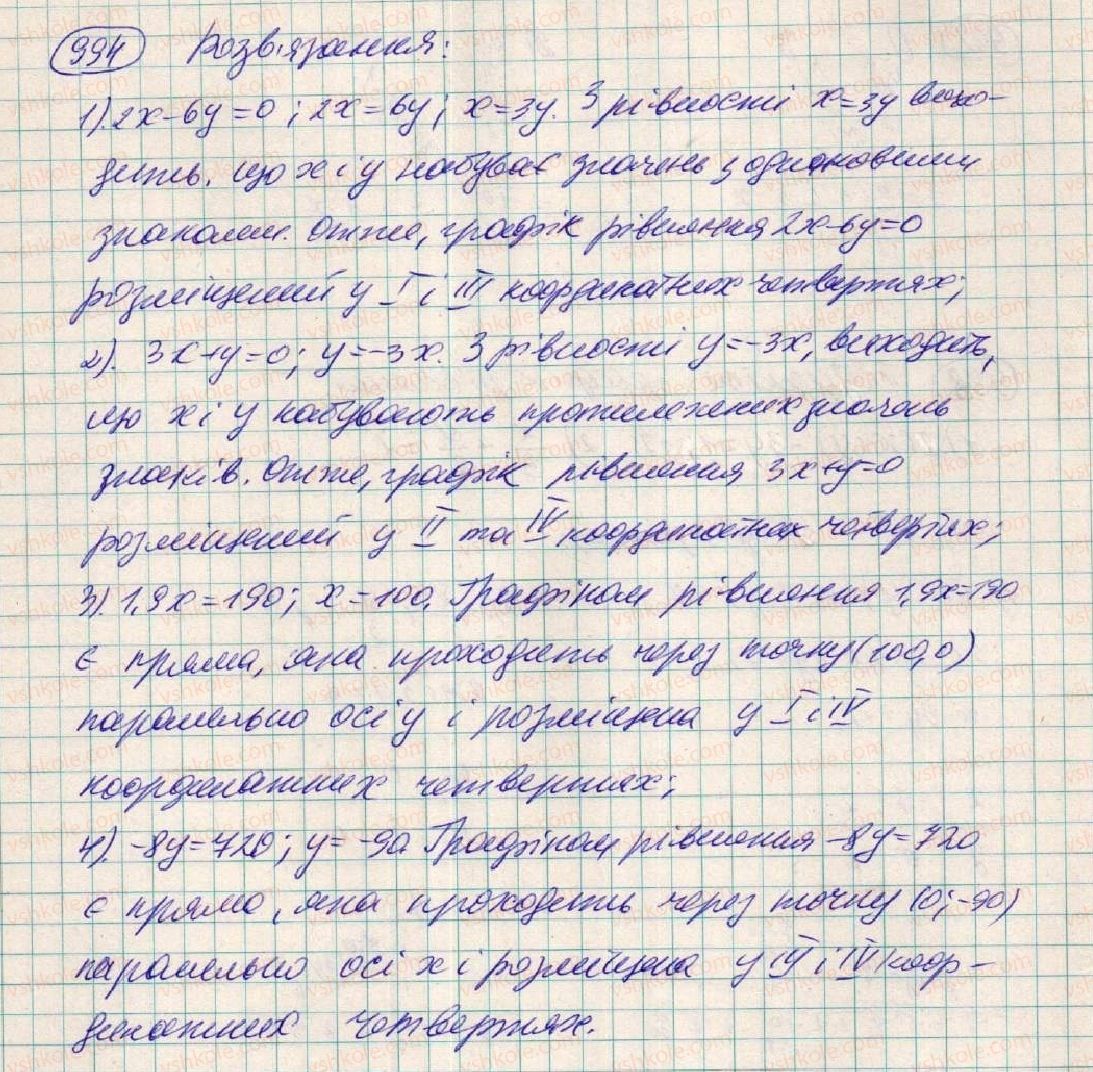 994 Розв'язання:
1). 2x-6y=0; 2x=6y; x=3y. З рівності x=3y вихо-
дить, що x і y набуває значень з однаковими
знаками. Отже, графік рівняння 2x-6y=0
розміщений у I і III координатних четвертях;
2). 3x+y=0; y=-3x. З рівності y=-3x, виходить,
що x і y набувають протилежних значень
знаків. Отже, графік рівняння 3x+y=0
розміщений у II та IV координатних четвертях;
3). 1,9x=190; x=100. Графіком рівняння 1,9x=190
є пряма, яка проходить через точку (100,0)
паралельно осі y і розміщена у I і IV
координатних четвертях;
4). -8y=720; y=-90. Графіком рівняння -8y=720
є пряма, яка проходить через точку (0;-90)
паралельно осі x і розміщена у і IV коор-
динатних четвертях.